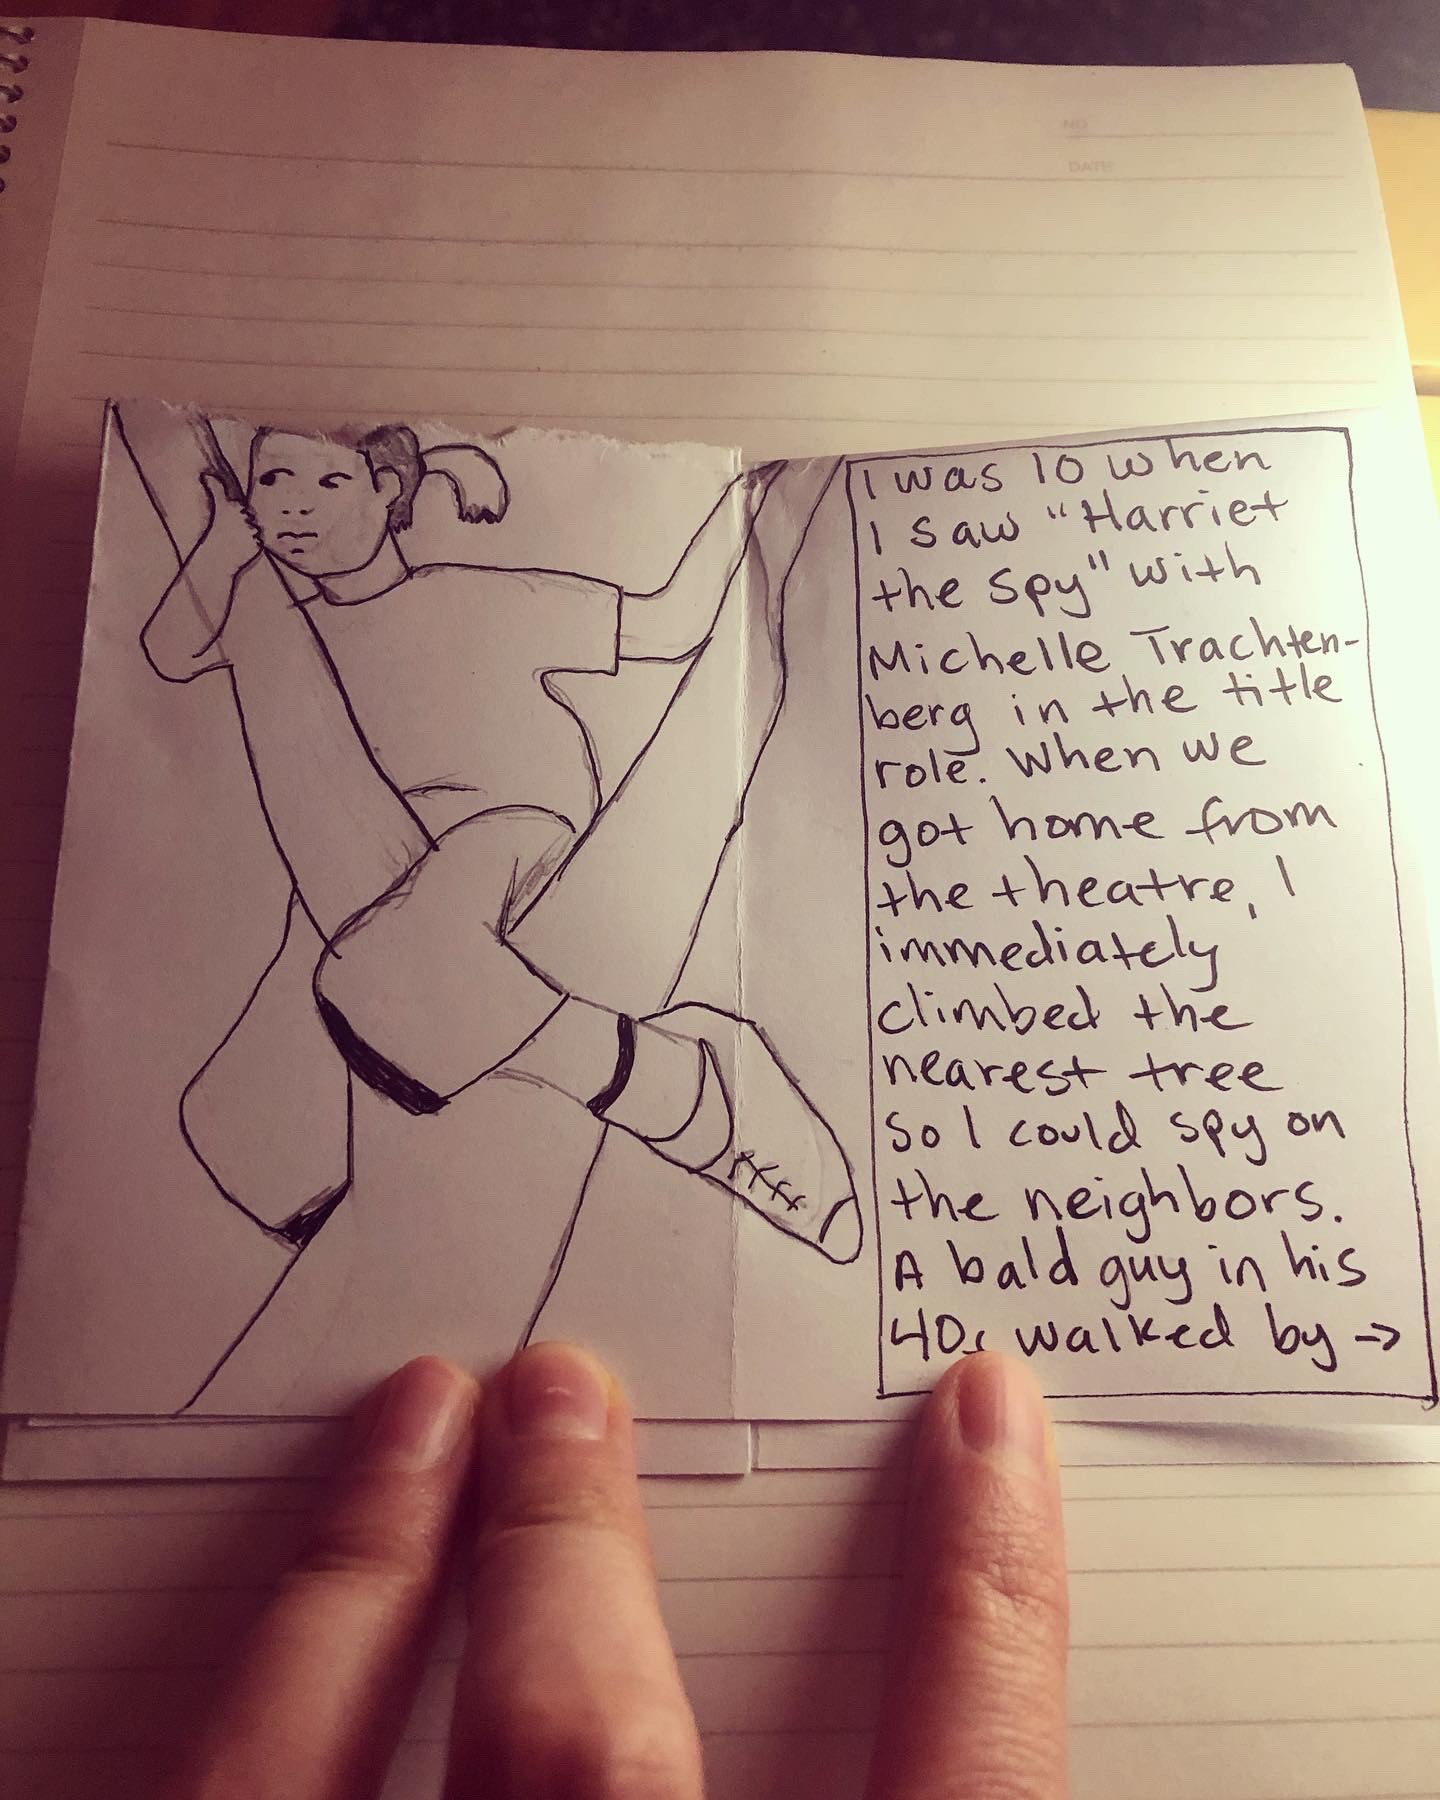 NO
DATE
I was 10 when
I saw "Harriet
the Spy" with
Michelle Trachten-
berg in the title
role. When we
got home from
the theatre, I
immediately
climbed the
nearest tree
so I could spy on
the neighbors.
A bald guy in his
40s walked by →